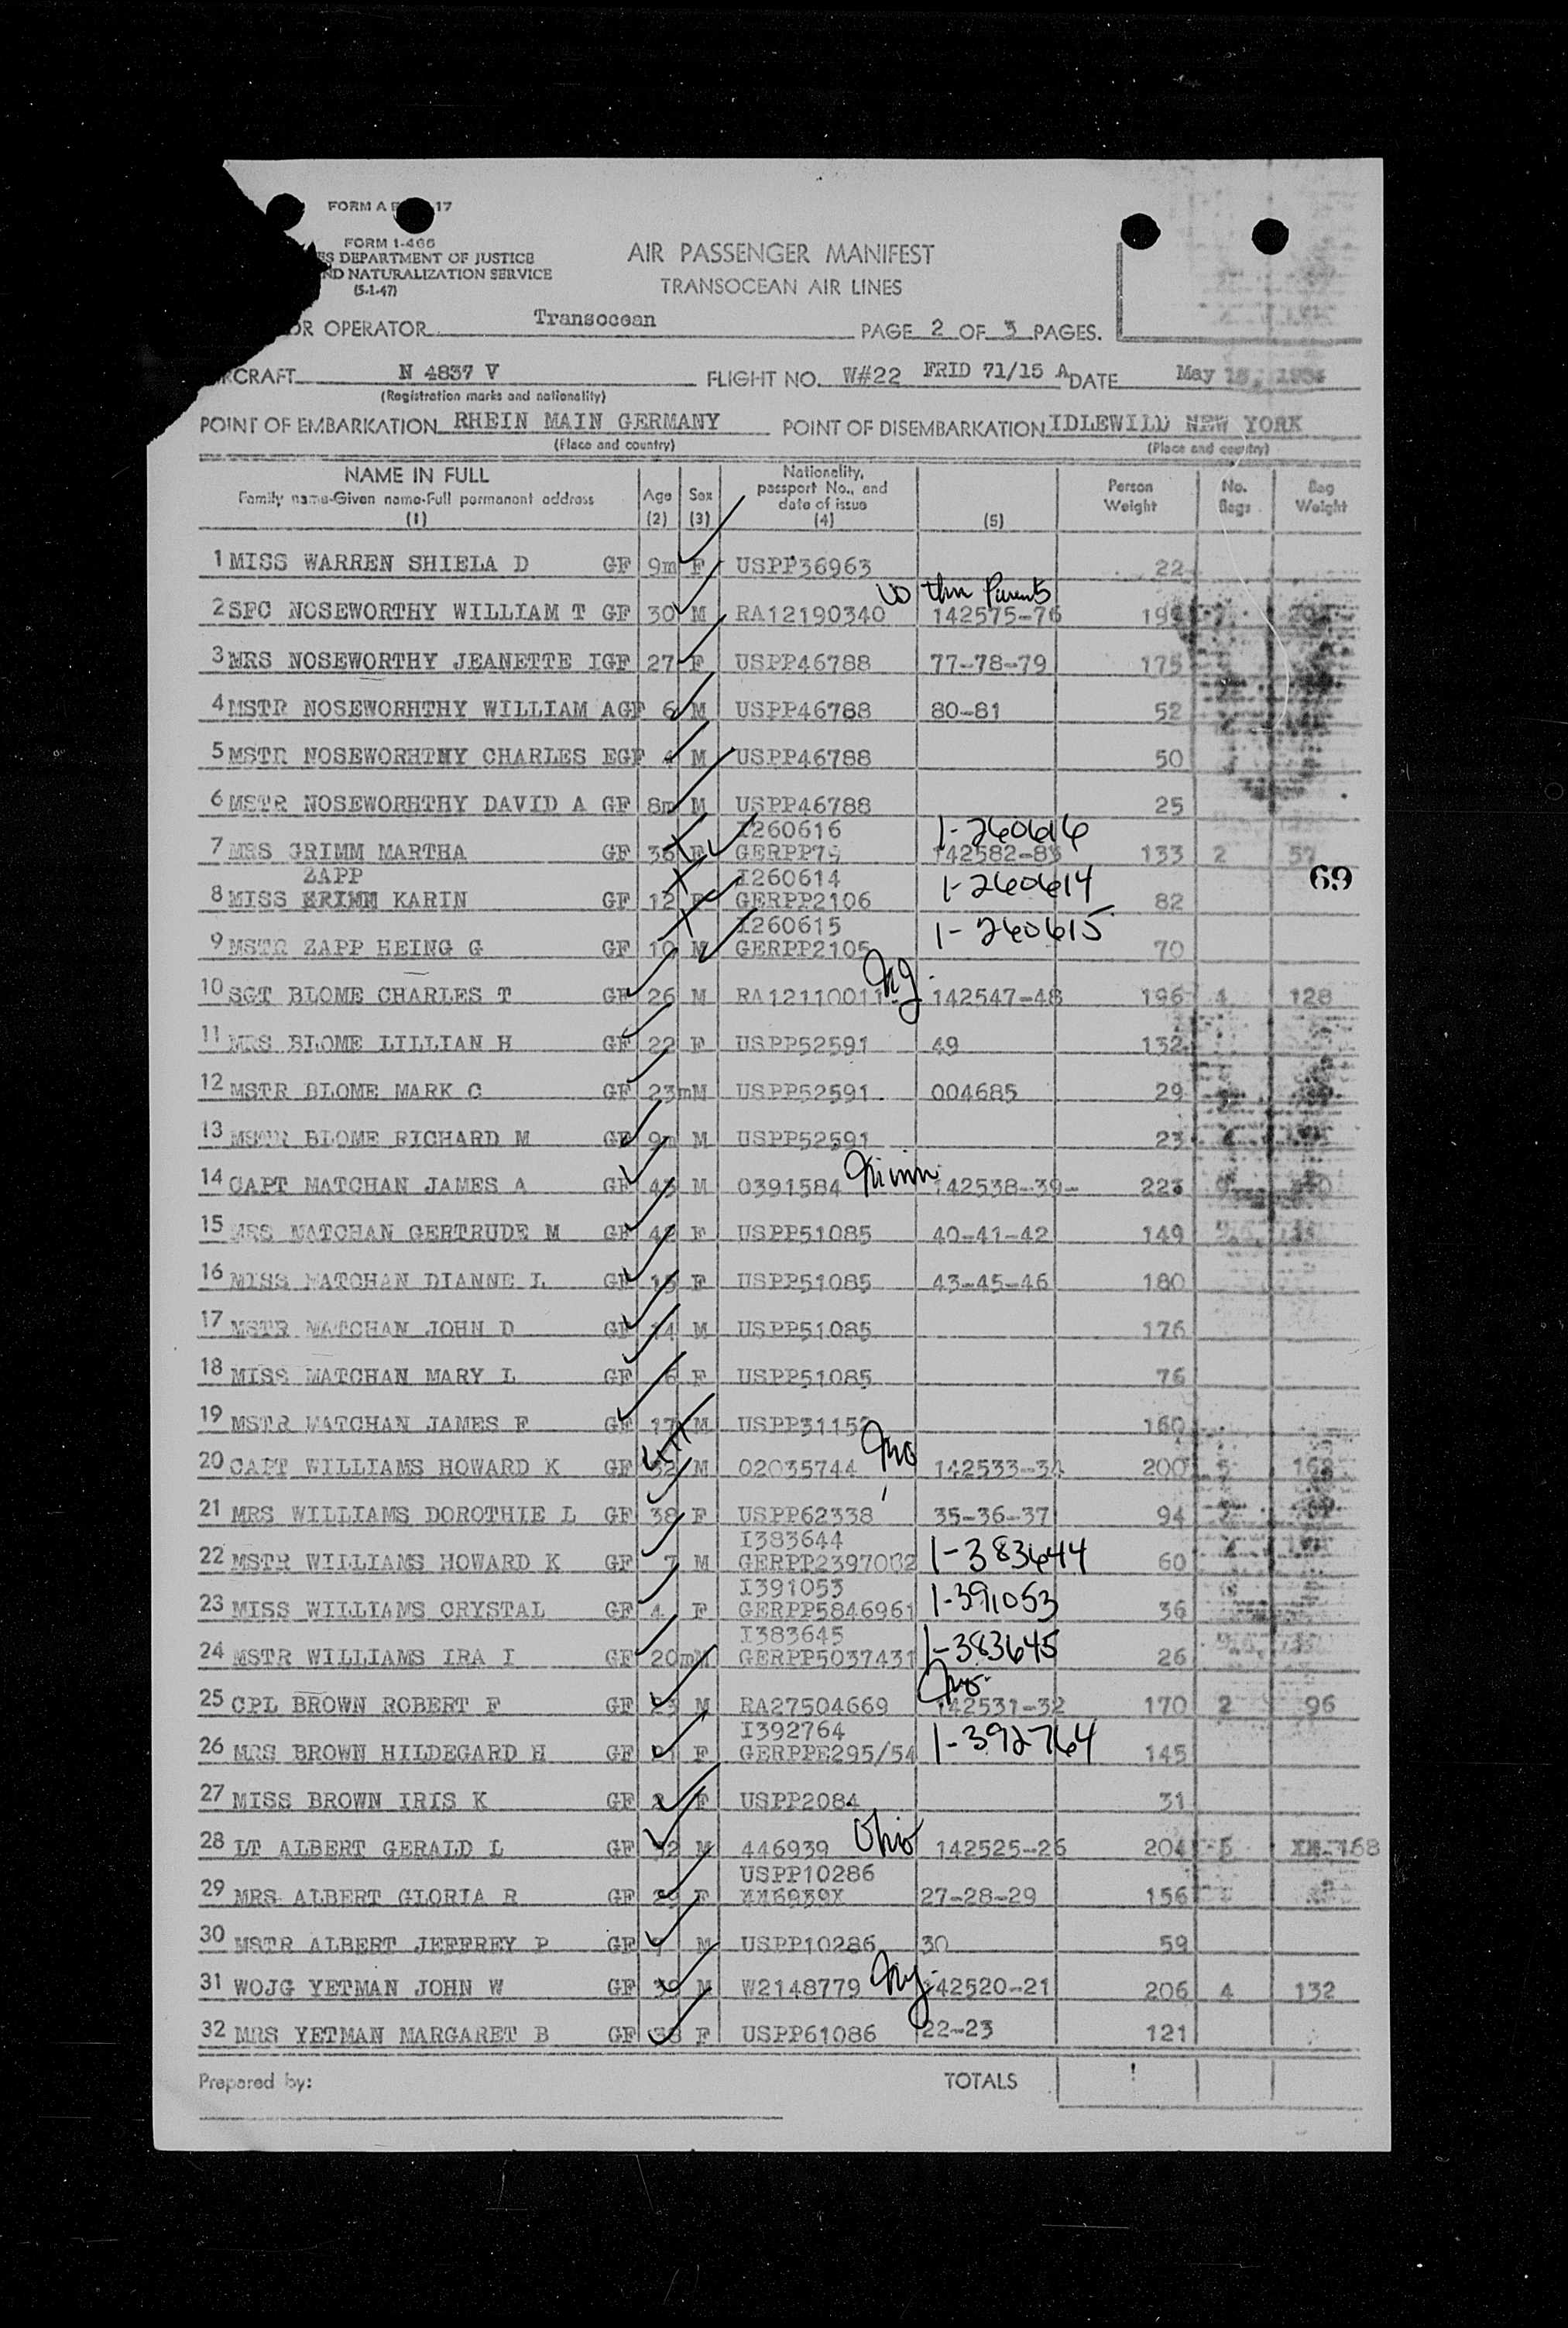 FORM A 17
FORM 1-466
DEPARTMENT OF JUSTICE
AND NATURALIZATION SERVICE
(5-1-47)
AIR PASSENGER MANIFEST
TRANSOCEAN AIR LINES
OR OPERATOR Transocean PAGE 2 OF 3 PAGES.
N 4837 V FLIGHT NO. W#22 FRID 71/15 A DATE May
(Registration marks and nationality)
POINT OF EMBARKATION RHEIN MAIN GERMANY POINT OF DISEMBARKATION IDLEWILD NEW YORK
(Place and country) (Place and country)
NAME IN FULL
Family name-Given name-Full permanent address
(1)
Age
(2)
Sex
(3)
Nationality,
passport No., and
date of issue
(4)
(5)
Person
Weight
No.
Bags
Bag
Weight
1 MISS WARREN SHIELA D GF 9m F USPP36963 22
VO thru Parents
2 SFC NOSEWORTHY WILLIAM T GF 30 M RA12190340 142575-76
3 MRS NOSEWORTHY JEANETTE I GF 27 F USPP46788 77-78-79 175
4 MSTR NOSEWORHTHY WILLIAM A GF 6 M USPP46788 80-81 52
5 MSTR NOSEWORHTHY CHARLES E GF 4 M USPP46788 50
6 MSTR NOSEWORHTHY DAVID A GF 8m M USPP46788 25
I260616 1-260616
7 MRS GRIMM MARTHA GF 36 F GERPP79 142582-83 133 2 57
69
ZAPP I260614 1-260614
8 MISS KARIN GF 12 F GERPP2106 82
I260615 1-260615
9 MSTR ZAPP HEING G GF 10 M GERPP2105 70
NJ.
10 SGT BLOME CHARLES T GF 26 M RA12110011 142547-48 196 4 128
11 MRS BLOME LILLIAN H GF 22 F USPP52591 49 132
12 MSTR BLOME MARK C GF 23m M USPP52591 004685 29
13 MSTR BLOME RICHARD M GF 9m M USPP52591 23
Minn
14 CAPT MATCHAN JAMES A GF 43 M 0391584 142538-39- 223
15 MRS MATCHAN GERTRUDE M GF 42 F USPP51085 40-41-42 149
16 MISS MATCHAN DIANNE L GF 15 F USPP51085 43-45-46 180
17 MSTR MATCHAN JOHN D GF 14 M USPP51085 176
18 MISS MATCHAN MARY L GF 6 F USPP51085 76
19 MSTR MATCHAN JAMES F GF 17 M 160
Mo
20 CAPT WILLIAMS HOWARD K GF 32 M 02035744 142533-34 200 5 168
21 MRS WILLIAMS DOROTHIE L GF 38 F USPP62338 35-36-37 94
I383644 1-383644
22 MSTR WILLIAMS HOWARD K GF 7 M GERPP2397002 60
I391053 1-391053
23 MISS WILLIAMS CRYSTAL GF 4 F GERPP5846961 36
I383645 1-383645
24 MSTR WILLIAMS IRA I GF 20m M GERPP5037431 26
Mo.
25 CPL BROWN ROBERT F GF 23 M RA27504669 142531-32 170 2 96
I392764 1-392764
26 MRS BROWN HILDEGARD H GF F GERPPE295/54 145
27 MISS BROWN IRIS K GF 2 F USPP2084 31
Ohio
28 LT ALBERT GERALD L GF 32 M 446939 142525-26 204 5 168
USPP10286
29 MRS ALBERT GLORIA R GF 29 F 27-28-29 156
30 MSTR ALBERT JEFFREY P GF M USPP10286 30 59
NY.
31 WOJG YETMAN JOHN W GF 39 M W2148779 142520-21 206 4 132
32 MRS YETMAN MARGARET B GF 38 F USPP61086 22-23 121
Prepared by: TOTALS